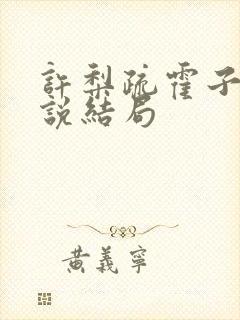 許梨疏霍子
說結局
黃義寧